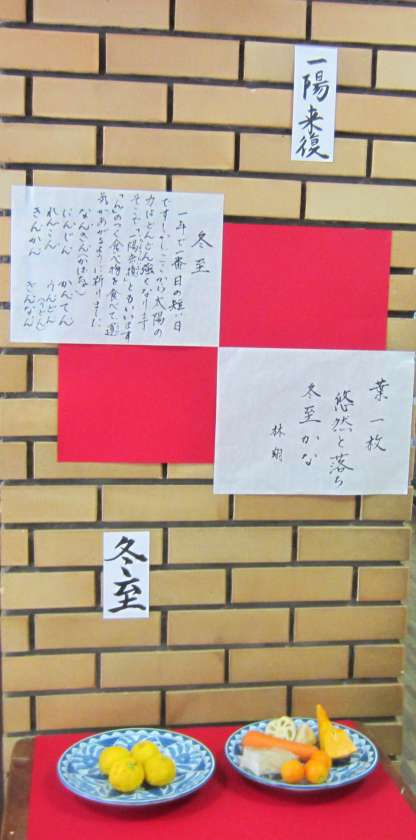 一陽来復
冬至
一年で一番日の短い日
です。しかしここから太陽の
力はどんどん強くなります
そこで一陽来復ともいいます
「ん」のつく食べ物を食べて、運
気があがるように祈りました
なんきん(かぼちゃ)
にんじん かんてん
れんこん うんどん(うどん)
きんかん ぎんなん
葉一枚
悠然と落ち
冬至かな
林 翔
冬至